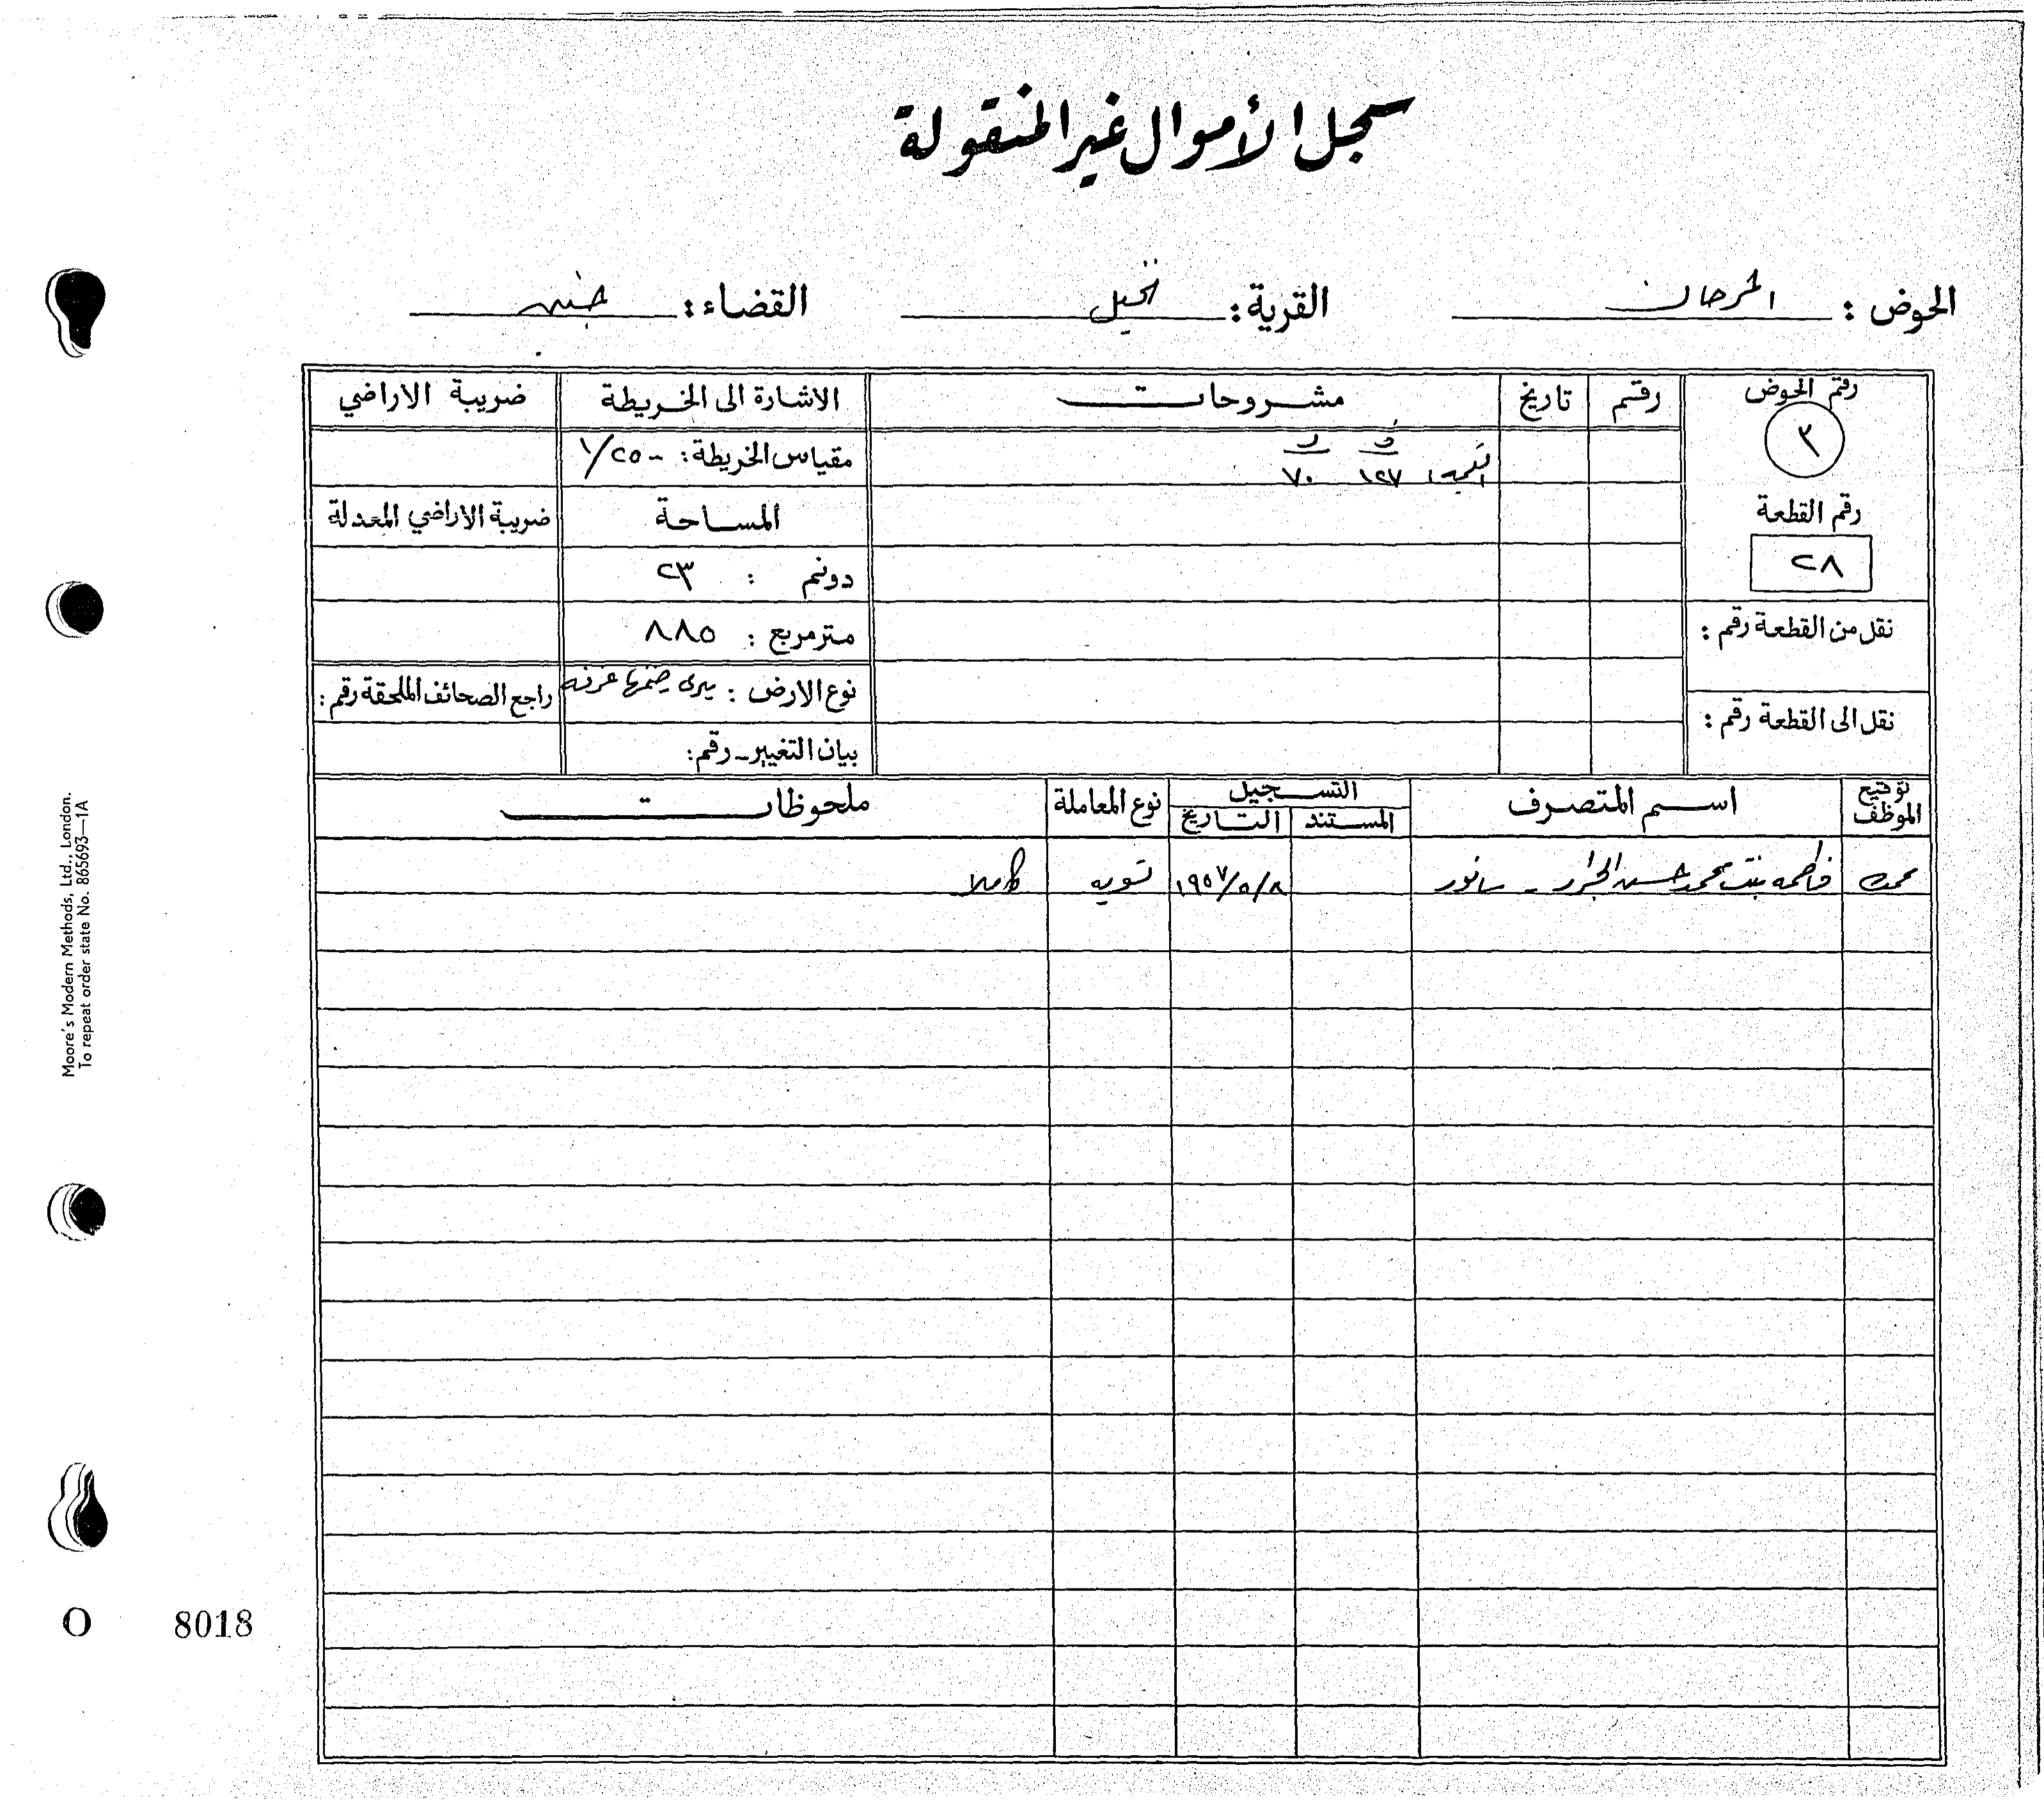 سجل الأموال غير المنقولة
الحوض : المرجان القرية : نخيل القضاء : جنين
رقم الحوض رقم تاريخ مشروحات الاشارة الى الخريطة ضريبة الاراضي
٣ ف ر
١٢٧ ٧٠ مقياس الخريطة : ١/٢٥٠٠
رقم القطعة المساحة ضريبة الاراضي المعدلة
٢٨ دونم : ٢٣
نقل من القطعة رقم : متر مربع : ٨٨٥
نوع الارض : يرى ضمنها غرفه راجع الصحائف الملحقة رقم :
نقل الى القطعة رقم : بيان التغيير - رقم :
توقيع الموظف اسم المتصرف التسجيل نوع المعاملة ملحوظات
المستند التاريخ
فاطمه بنت محمد حسن الجرار - سانور ١٩٥٧/٥/٨ تسويه كاملا
Moore's Modern Methods, Ltd., London.
To repeat order state No. 865693—1A
O 8018